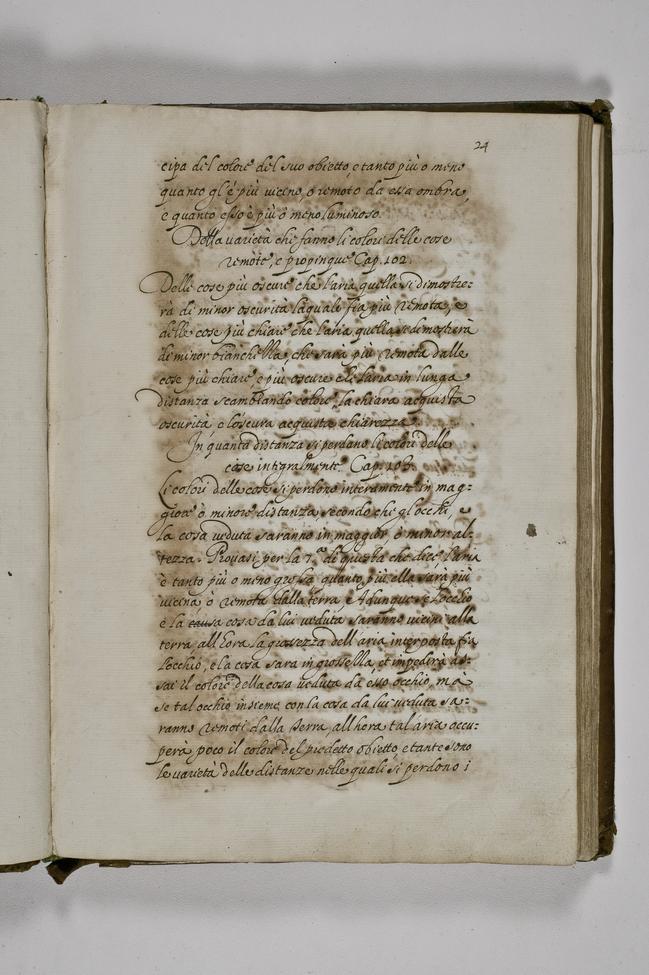 24
cipa del colore del suo obietto, e tanto più o meno
quanto gl'è più vicino, o remoto da essa ombra,
e quanto esso è più o meno luminoso.
Della varietà che fanno li colori delle cose
remote, e propinque Cap. 102.
Delle cose più oscure che l'aria quella si dimostre:
rà di minor oscurità laquale fia più remota, e
delle cose più chiare che l'aria quella se dimosterà
di minor bianchezza, che sarà più remota dalle
cose più chiare e più oscure che l'aria in lunga
distanza scambiando colore, la chiara acquista
oscurità e l'oscura acquista chiarezza.
In quanta distanza si perdano li colori delle
cose integralmente. Cap. 103.
Li colori delle cose si perdono interamente in mag-
giore o minore distanza, secondo che gl'occhi, e
la cosa veduta saranno in maggior, o minor al-
tezza. Provasi per la 7.a di questa che dice l'aria
è tanto più o meno grossa, quanto più ella sarà più
vicina, ò remota dalla terra, e Adunque se l'occhio
e la causa cosa da lui veduta saranno vicini alla
terra, all'hora la grossezza dell'aria interposta fra
l'occhio, e la cosa sara in grossella, et impedirà as-
sai il colore della cosa veduta da esso occhio, mà
se tal occhio insieme con la cosa da lui veduta sa:
ranno remoti dalla terra, all'hora tal'aria occu:
perà poco il colore del predetto obietto, e tante sono
le varietà delle distanze nelle quali si perdono i